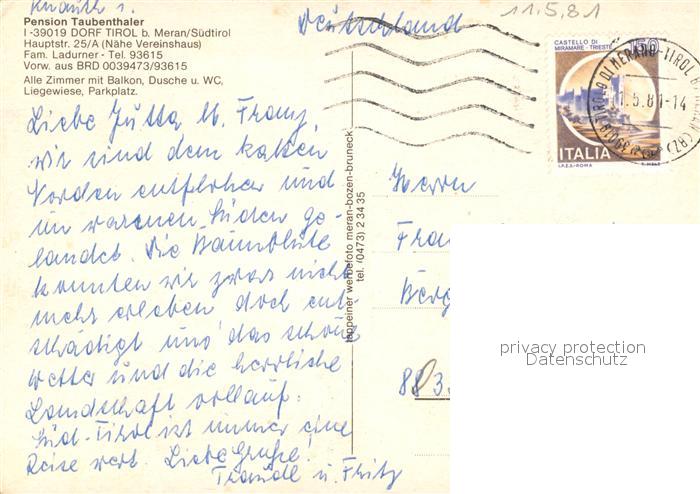 Deutschland
11.5.81
Pension Taubenthaler
I-39019 DORF TIROL b. Meran/Südtirol
Hauptstr. 25/A (Nähe Vereinshaus)
Fam. Ladurner - Tel. 93615
Vorw. aus BRD 0039473/93615
Alle Zimmer mit Balkon, Dusche u. WC,
Liegewiese, Parkplatz.
Liebe Jutta, lb. Franz,
wir sind dem kalten
Norden entflohen und
im warmen Süden ge-
landet. Die Baumblüte
konnten wir zwar nicht
mehr erleben doch ent-
schädigt uns das schöne
Wetter und die herrliche
Landschaft vollauf.
Süd-Tirol ist immer eine
Reise wert. Liebe Grüße!
Traudl u. Fritz
tappeiner werbefoto meran-bozen-bruneck
tel. (0473) 2 34 35
CASTELLO DI
MIRAMARE - TRIESTE
150
ITALIA
I.P.Z.S.-ROMA
5.81-14
Herrn
Fran
Berg
883
privacy protection
Datenschutz